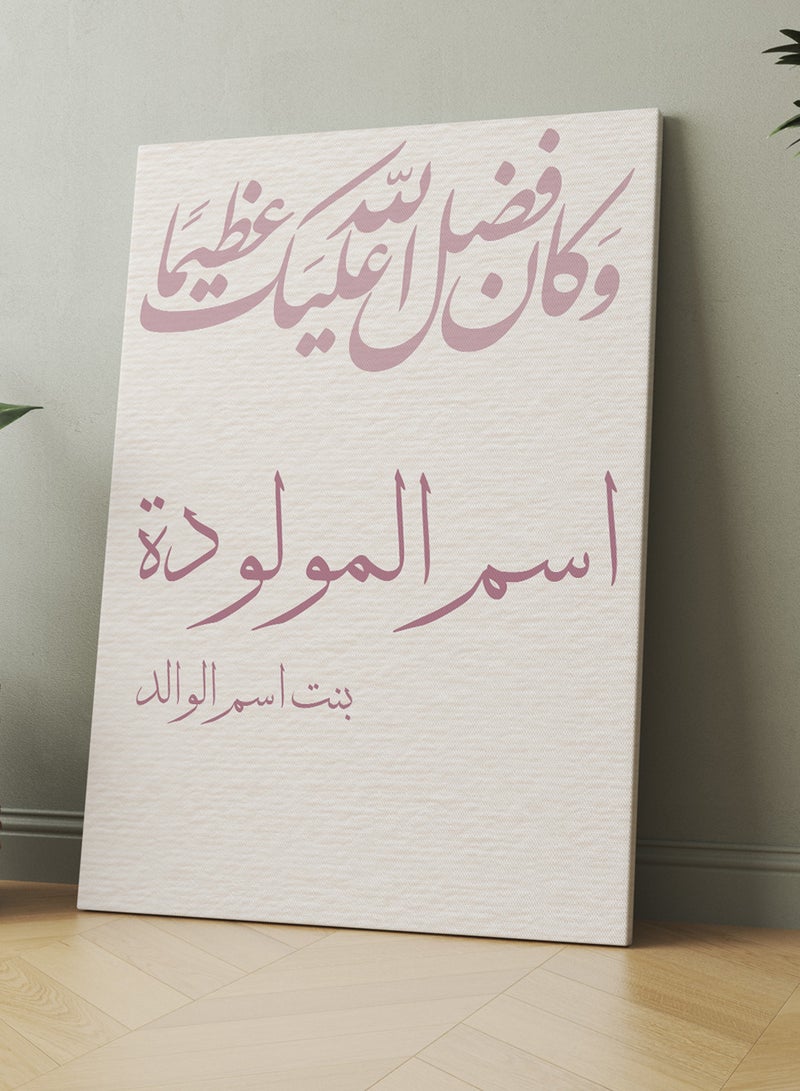 وَكان فضل الله عليك عظيمَا
اسم المولودة
بنت اسم الوالد